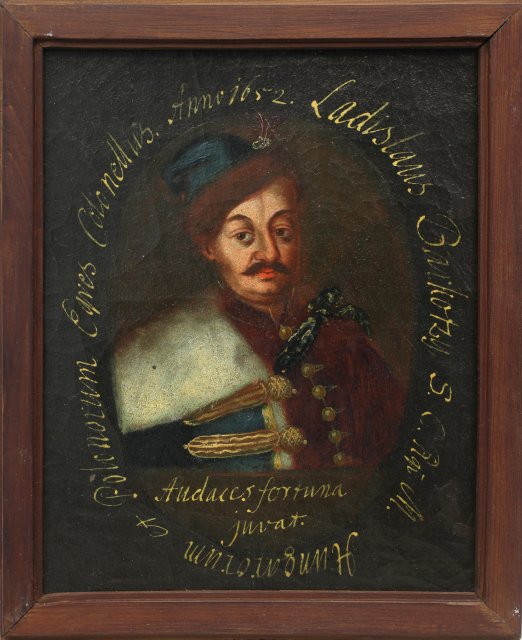 Ladislaus Bankotzy S. C. Rq. M.
Hungarorum
et Polonorum Eques Colonellus. Anno 1652.
Audaces fortuna
juvat.